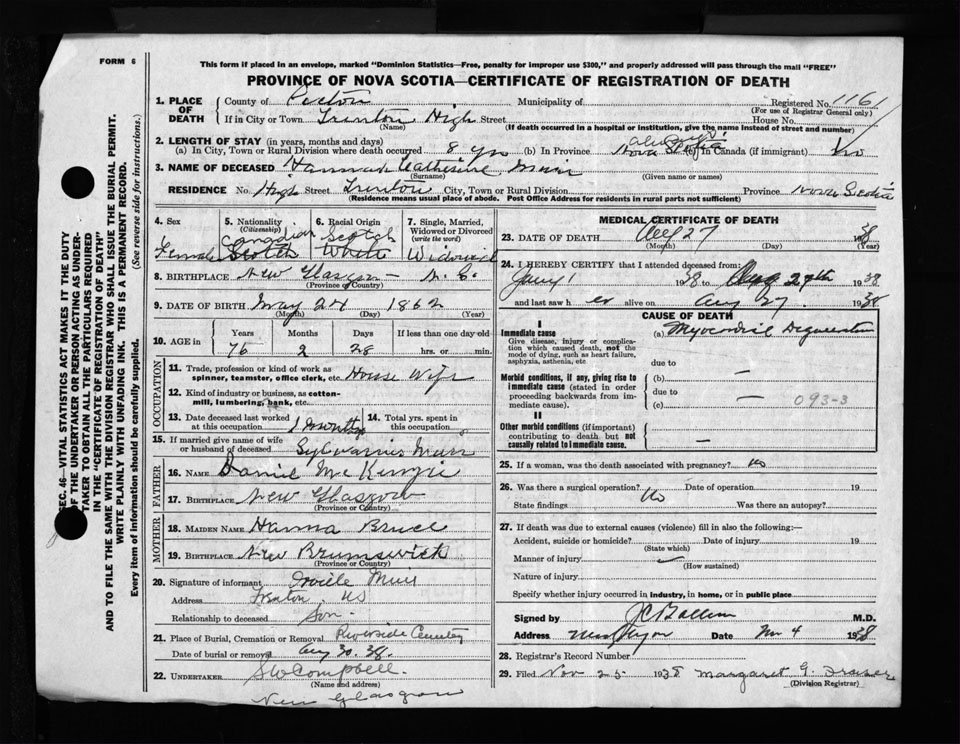 FORM 6
This form if placed in an envelope, marked "Dominion Statistics—Free, penalty for improper use $300," and properly addressed will pass through the mail "FREE"
PROVINCE OF NOVA SCOTIA—CERTIFICATE OF REGISTRATION OF DEATH
1. PLACE OF DEATH { County of Pictou Municipality of Registered No. 1161
(For use of Registrar General only)
If in City or Town Trenton High Street House No.
(Name) (If death occurred in a hospital or institution, give the name instead of street and number)
2. LENGTH OF STAY (in years, months and days) always
(a) In City, Town or Rural Division where death occurred 8 yrs (b) In Province Nova Scotia (c) In Canada (if immigrant)
3. NAME OF DECEASED Hannah Catherine Muir
(Surname) (Given name or names)
RESIDENCE No. High Street Trenton City, Town or Rural Division Province Nova Scotia
(Residence means usual place of abode. Post Office Address for residents in rural parts not sufficient)
4. Sex Female
5. Nationality (Citizenship) Canadian Scotch
6. Racial Origin Scotch White
7. Single, Married, Widowed or Divorced (write the word) Widowed
8. BIRTHPLACE New Glasgow — N. S.
(Province or Country)
9. DATE OF BIRTH May 24 1862
(Month) (Day) (Year)
10. AGE in { Years 76 Months 2 Days 28 If less than one day old hrs. or min.
OCCUPATION
11. Trade, profession or kind of work as spinner, teamster, office clerk, etc. House Wife
12. Kind of industry or business, as cotton-mill, lumbering, bank, etc.
13. Date deceased last worked at this occupation 1 month
14. Total yrs. spent in this occupation
15. If married give name of wife or husband of deceased Sylvanus Muir
FATHER
16. NAME Daniel McKenzie
17. BIRTHPLACE New Glasgow
(Province or Country)
MOTHER
18. MAIDEN NAME Hanna Bruce
19. BIRTHPLACE New Brunswick
(Province or Country)
20. Signature of informant Muir
Address Trenton NS
Relationship to deceased Son
21. Place of Burial, Cremation or Removal Riverside Cemetery
Date of burial or removal Aug 30. 38.
22. UNDERTAKER SW Campbell
(Name and address)
New Glasgow
MEDICAL CERTIFICATE OF DEATH
23. DATE OF DEATH Aug 27 1938
(Month) (Day) (Year)
24. I HEREBY CERTIFY that I attended deceased from:
Jany 1 1938 to Aug 27th 1938
and last saw her alive on Aug 27 1938
CAUSE OF DEATH
I
Immediate cause
Give disease, injury or complication which caused death, not the mode of dying, such as heart failure, asphyxia, asthenia, etc
(a) Myocardial Degeneration
due to
Morbid conditions, if any, giving rise to immediate cause (stated in order proceeding backwards from immediate cause).
(b) —
due to
(c) — 093-3
II
Other morbid conditions (if important) contributing to death but not causally related to immediate cause.
—
25. If a woman, was the death associated with pregnancy? No
26. Was there a surgical operation? No Date of operation 19
State findings Was there an autopsy?
27. If death was due to external causes (violence) fill in also the following:—
Accident, suicide or homicide? Date of injury 19
(State which)
Manner of injury
(How sustained)
Nature of injury
Specify whether injury occurred in industry, in home, or in public place
Signed by M.D.
Address Date Nov 4 1938
28. Registrar's Record Number
29. Filed Nov 23 1938 Margaret G. Fraser
(Division Registrar)
SEC. 46—VITAL STATISTICS ACT MAKES IT THE DUTY
OF THE UNDERTAKER OR PERSON ACTING AS UNDER-
TAKER TO OBTAIN ALL THE PARTICULARS REQUIRED
IN THE "CERTIFICATE OF REGISTRATION OF DEATH"
AND TO FILE THE SAME WITH THE DIVISION REGISTRAR WHO SHALL ISSUE THE BURIAL PERMIT.
WRITE PLAINLY WITH UNFADING INK. THIS IS A PERMANENT RECORD.
Every item of information should be carefully supplied. (See reverse side for instructions.)